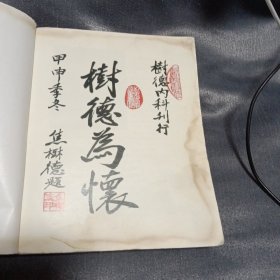 樹德內科刊行
樹德為懷
甲申季冬
焦樹德題